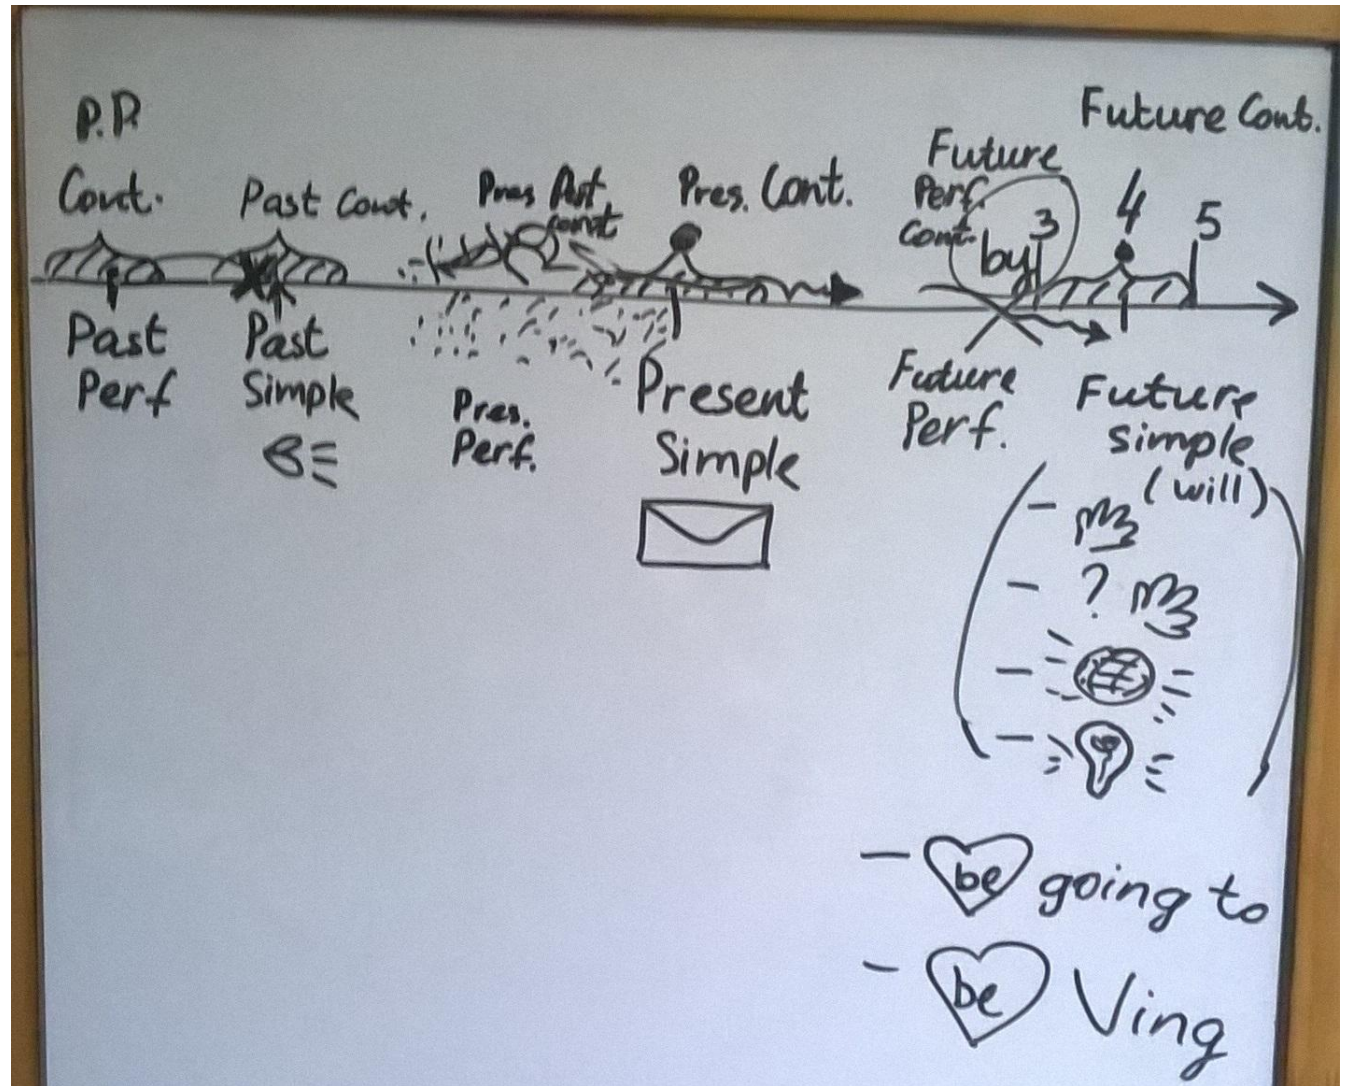 P.P.
Cont.
Past Cont.
Pres
cont
Pres. Cont.
Future
Perf.
Cont.
by
3
Future Cont.
4
5
Past
Perf
Past
Simple
Pres.
Perf.
Present
Simple
Future
Perf.
Future
simple
(will)
?
- be going to
- be Ving